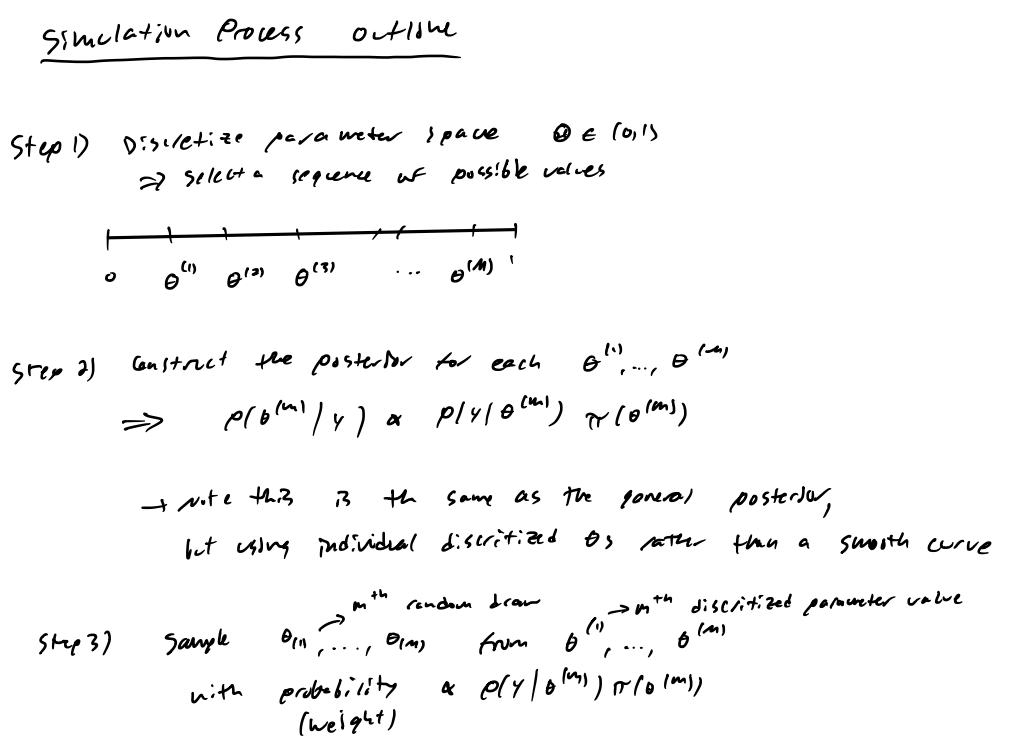 Simulation Process outline
Step 1) Discretize parameter space Θ ∈ (0,1)
⇒ select a sequence of possible values
0 θ^(1) θ^(2) θ^(3) ... θ^(M) 1
Step 2) Construct the posterior for each θ^(1), ..., θ^(M)
⇒ p(θ^(m) | y) ∝ p(y | θ^(m)) π(θ^(m))
→ Note this is th same as the general posterior,
but using individual discritized θs rather than a smooth curve
→ m^th random draw → m^th discritized parameter value
Step 3) Sample θ_(1), ..., θ_(M) from θ^(1), ..., θ^(M)
with probability ∝ p(y | θ^(m)) π(θ^(m))
(weight)